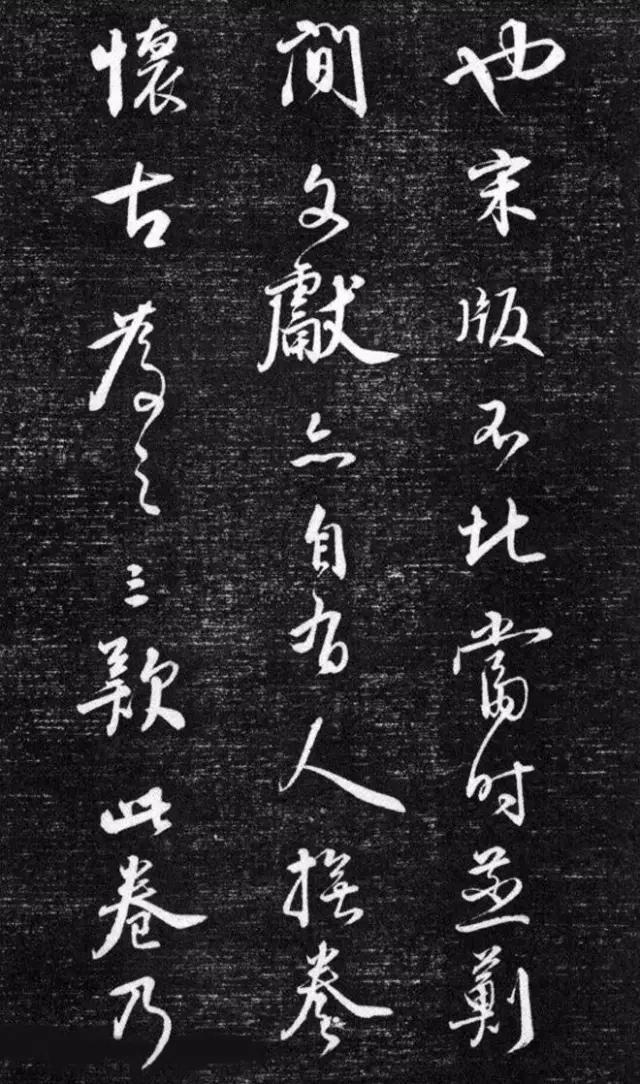 也宋版不北當時燕薊
間文獻亦自有人撫卷
懷古為之三歎此卷乃